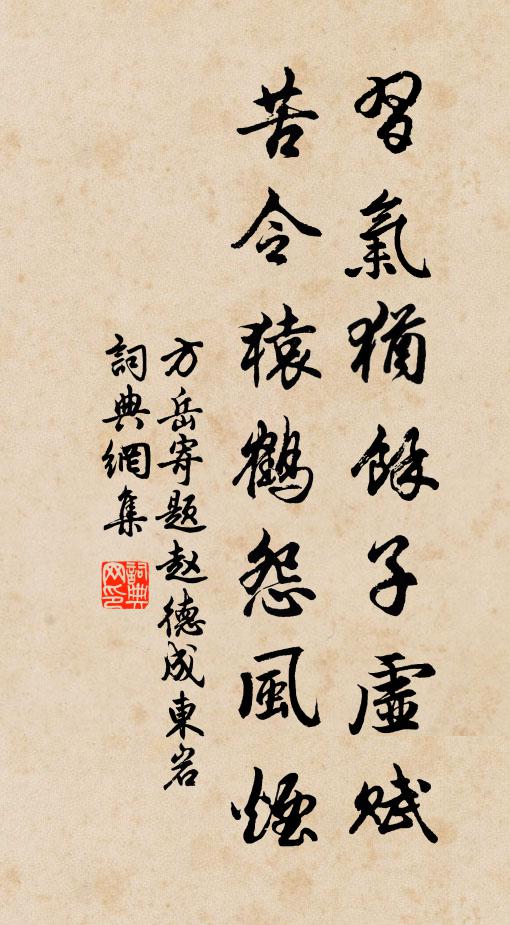 習氣猶餘子虛賦
苦令猿鶴怨風煙
方岳寄題赵德成東岩
詞典網集
詞典网印